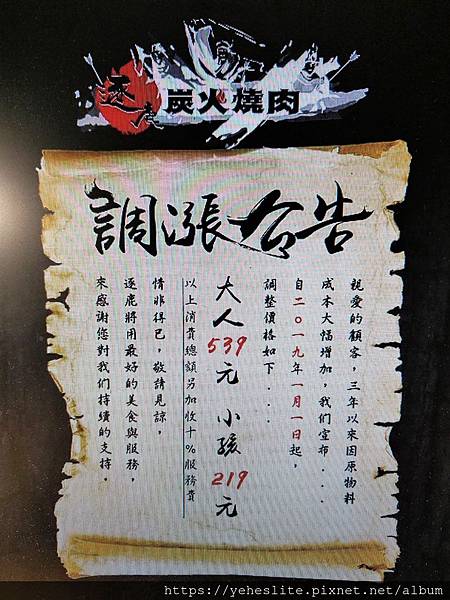 逐鹿
炭火燒肉
調漲公告
親愛的顧客，三年以來因原物料
成本大幅增加，我們宣布...
自二〇一九年一月一日起，
調整價格如下...
大人539元 小孩219元
以上消費總額另加收十%服務費
情非得已，敬請見諒，
逐鹿將用最好的美食與服務，
來感謝您對我們持續的支持。
https://yeheslite.pixnet.net/album